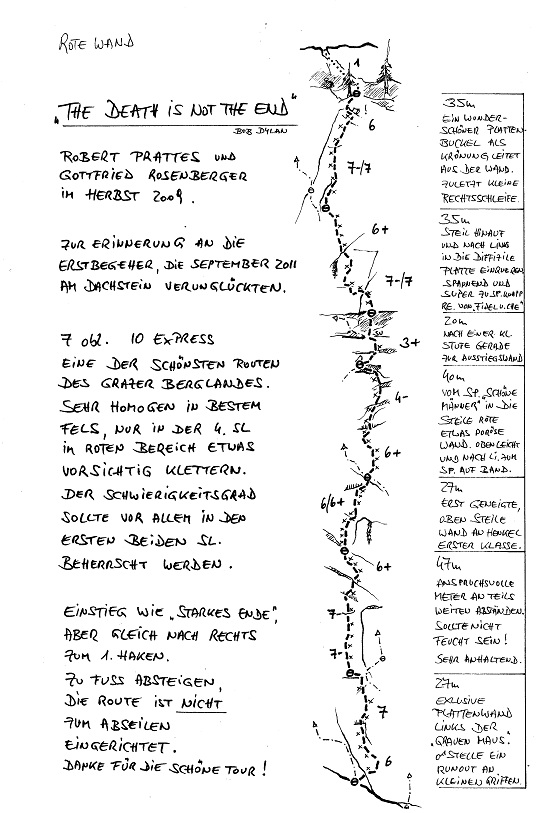 ROTE WAND
"THE DEATH IS NOT THE END"
BOB DYLAN
ROBERT PRATTES UND
GOTTFRIED ROSENBERGER
IM HERBST 2009.
ZUR ERINNERUNG AN DIE
ERSTBEGEHER, DIE SEPTEMBER 2011
AM DACHSTEIN VERUNGLÜCKTEN.
7 obl. 10 EXPRESS
EINE DER SCHÖNSTEN ROUTEN
DES GRAZER BERGLANDES.
SEHR HOMOGEN IN BESTEM
FELS, NUR IN DER 4. SL
IM ROTEN BEREICH ETWAS
VORSICHTIG KLETTERN.
DER SCHWIERIGKEITSGRAD
SOLLTE VOR ALLEM IN DEN
ERSTEN BEIDEN SL.
BEHERRSCHT WERDEN.
EINSTIEG WIE "STARKES ENDE",
ABER GLEICH NACH RECHTS
ZUM 1. HAKEN.
ZU FUSS ABSTEIGEN,
DIE ROUTE IST NICHT
ZUM ABSEILEN
EINGERICHTET.
DANKE FÜR DIE SCHÖNE TOUR!
1
6
7-/7
6+
7-/7
3+
4-
6+
6/6+
6+
7-
7-
7
6
35m
EIN WUNDER-
SCHÖNER PLATTEN-
BUCKEL ALS
KRÖNUNG LEITET
AUS DER WAND.
ZULETZT KLEINE
RECHTSSCHLEIFE.
35m
STEIL HINAUF
UND NACH LINKS
IN DIE DIFFIZILE
PLATTE EINQUEREN
SPANNEND UND
SUPER ZU SP. KNAPP
RE. VON "FIDEL U. CHE"
20m
NACH EINER KL.
STUFE GERADE
ZUR AUSSTIEGSWAND
40m
VOM SP. "SCHÖNE
MÄNNER" IN DIE
STEILE ROTE
ETWAS PORÖSE
WAND. OBEN LEICHT
UND NACH LI. ZUM
SP. AUF BAND.
27m
ERST GENEIGTE,
OBEN STEILE
WAND AN HENKEL
ERSTER KLASSE.
47m
ANSPRUCHSVOLLE
METER AN TEILS
WEITEN ABSTÄNDEN.
SOLLTE NICHT
FEUCHT SEIN!
SEHR ANHALTEND.
27m
EXLUSIVE
PLATTENWAND
LINKS DER
"GRAUEN MAUS".
STELLE EIN
RUNOUT AN
KLEINEN GRIFFEN.